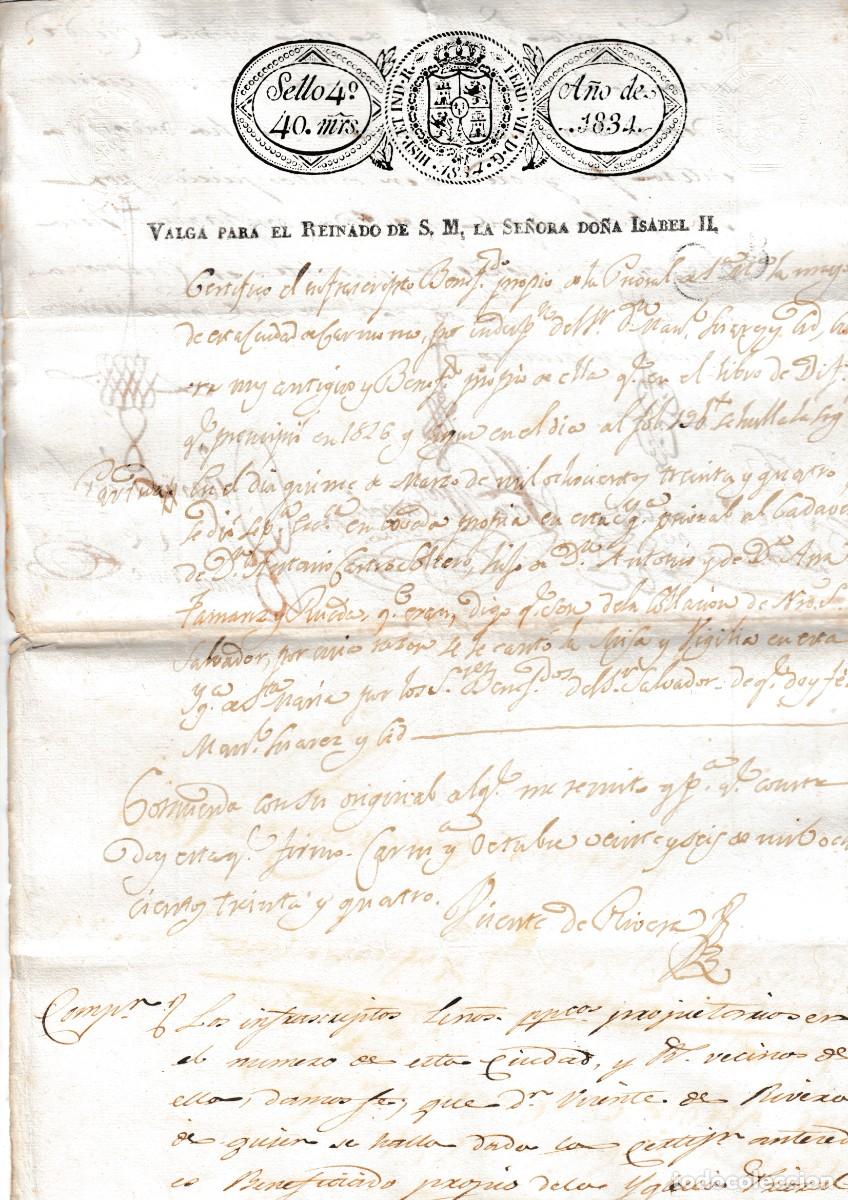 Sello 4º
40. mrs.
HISP. ET IND. R. FERD. VII. D. G. 1834.
Año de
1834.
VALGA PARA EL REINADO DE S. M. LA SEÑORA DOÑA ISABEL II.
Certifico el infrascripto Benefdo propio de la Prioral de Sta Mª la mayor
de esta Ciudad de Carmona, por del Sr. Dn Manl. Suarez y Cid,
mas antiguo y Benefdo propio de ella qe en el libro de Dif.
qe. principió en 1826 y sigue en el dia al fol. 198 se halla la sig
Partida En el dia quince de Marzo de mil ochocientos treinta y quatro
se dió Sepª Ecca en boveda propia en esta Ygª prioral al Cadave
de Dn Antonio Soltero, hijo de Dn Antonio y de Dª Ana
Tamariz y Rueda, qe eran, digo qe son de la Collacion de Nro. S.
Salvador, por cuia razon se le cantó la Misa y Vigilia en esta
Ygª de Sta Maria por los Sres Benefdos del Sr Salvador. de qe. doy fé
Manl. Suarez y Cid
Concuerda con su original al qe. me remito y pª qe. conste
doy esta qe. firmo. Carmª y Octubre veinte y seis de mil ocho
cientos treinta y quatro.
Vicente de Rivera
Compn Los infrascriptos Esnos. ppcos propietarios en
el numero de esta Ciudad, y vecinos de
ella, damos fe, que Dn Vicente de Rivera
de quien se halla dada la Certifn anteced
es Beneficiado propio de la Yglesia Prioral
todocoleccion